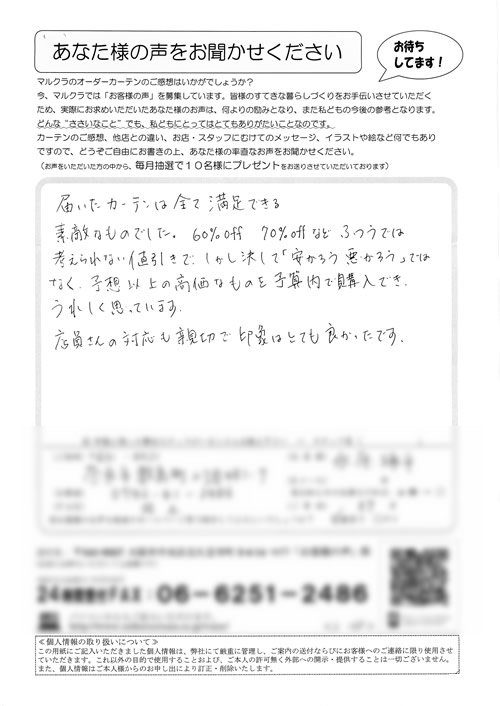 あなた様の声をお聞かせください
お待ち
してます！
マルクラのオーダーカーテンのご感想はいかがでしょうか？
今、マルクラでは「お客様の声」を募集しています。皆様のすてきな暮らしづくりをお手伝いさせていただく
ため、実際にお求めいただいたあなた様のお声は、何よりの励みとなり、また私どもの今後の参考となります。
どんな“ささいなこと”でも、私どもにとってはとてもありがたいことなのです。
カーテンのご感想、他店との違い、お店・スタッフにむけてのメッセージ、イラストや絵など何でもあり
ですので、どうぞご自由にお書きの上、あなた様の率直なお声をお聞かせください。
（お声をいただいた方の中から、毎月抽選で１０名様にプレゼントをお送りさせていただいております）
届いたカーテンは全て満足できる
素敵なものでした。60%off 70%offなど ふつうでは
考えられない値引きで しかし決して「安かろう悪かろう」では
なく、予想以上の高価なものを予算内で購入でき、
うれしく思っています。
店員さんの対応も親切で印象はとても良かったです。
24時間受付FAX：06-6251-2486
≪個人情報の取り扱いについて≫
この用紙にご記入いただきました個人情報は、弊社にて厳重に管理し、ご案内の送付ならびにお客様へのご連絡に限り使用させ
ていただきます。これ以外の目的で使用することおよび、ご本人の許可無く外部への開示・提供することは一切ございません。
また、個人情報はご本人様からのお申し出により訂正・削除いたします。